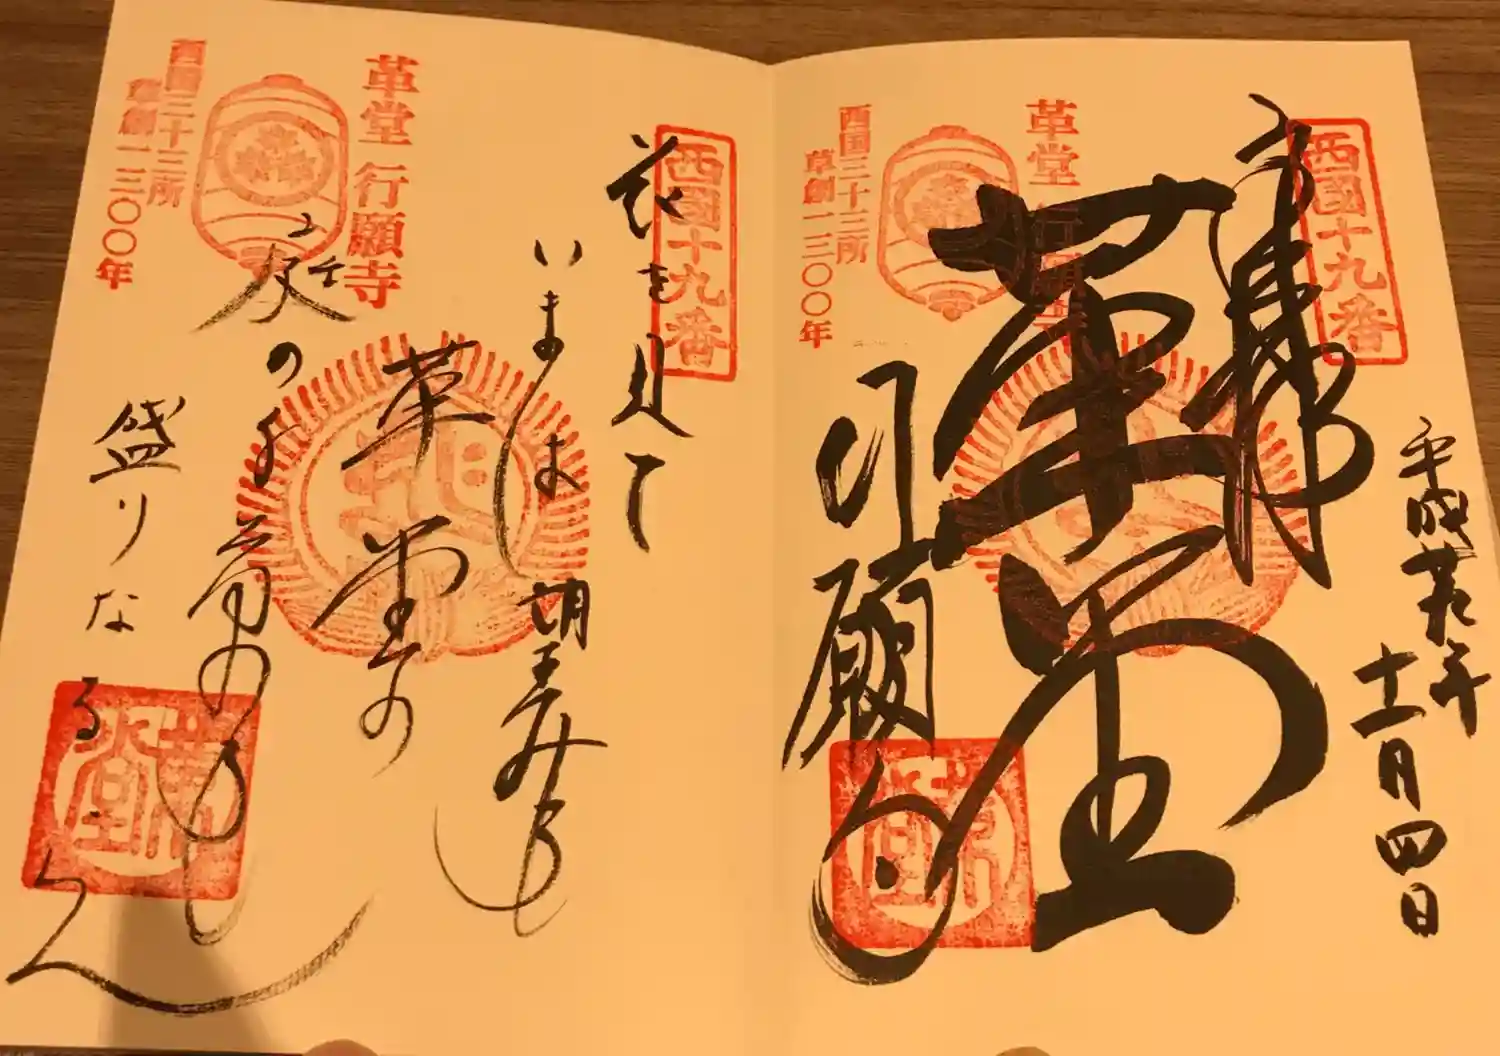 西國十九番
奉拝
平成
十二月四日
革堂
行願寺
革堂 行願寺
西国三十三所
草創一三〇〇年
西國十九番
花を見て
いまは望みも
革堂の
庭の千草も
盛りなるらん
革堂 行願寺
西国三十三所
草創一三〇〇年
革堂